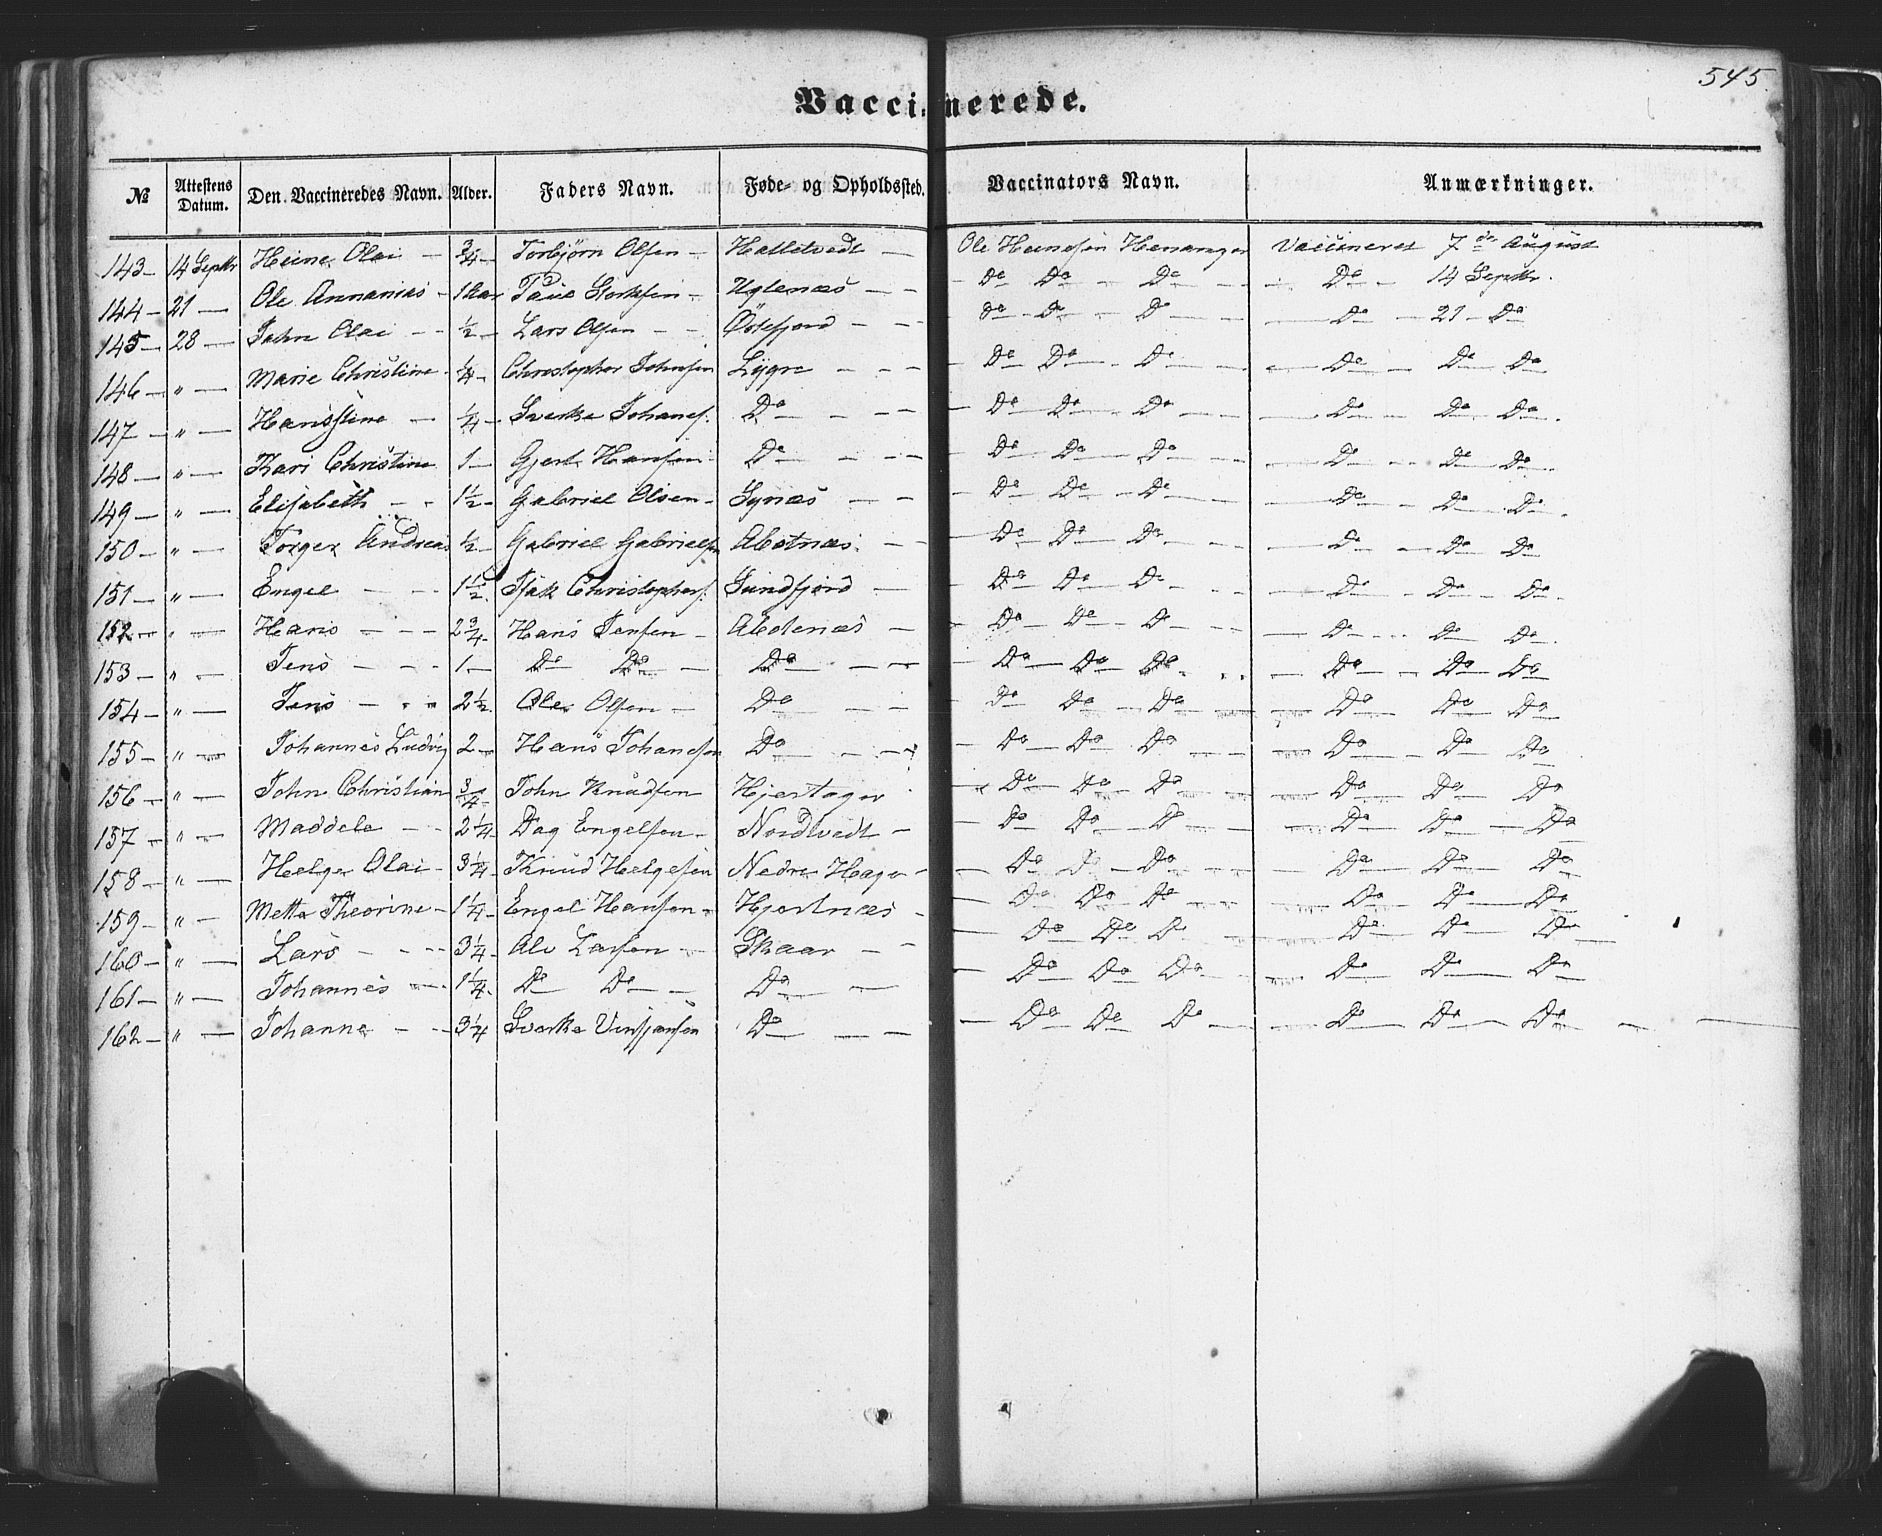 545.
Vaccinerede.
№ Attestens Datum. Den Vaccineredes Navn. Alder. Faders Navn. Føde- og Opholdssted. Vaccinators Navn. Anmærkninger.
143 – 14 Septbr Heine Olai – 3/4 – Torbjørn Olsen – Halletvedt – Ole Hansen Henanger Vaccineret 7de August
144 – 21 – Ole Annanias – 1 Aar Paul – Uglenæs – – Do Do – Do – Do – 14 Septbr.
145 – 28 – John Olai – – 1/2 – Lars Olsen – – Østefjord – – Do – Do – Do – – Do – 21 – Do
146 – " – Marie Christine – 1/4 – Christopher Johnsen Lygre – – – Do Do – Do – – Do – Do Do
147 – " – Hansine – 1/4 – Sverke Johans. Do – – – Do Do – Do – – Do – Do Do.
148 – " – Kari Christine 1 – Gjert Hansen Do – – – Do Do – Do – – Do – Do Do.
149 – " – Elisabeth – – 1 1/2 – Gabriel Olsen – Synæs – – Do Do – Do – – Do – Do – Do.
150 – " – Torger Andreas 1/2 – Gabriel Gabrielsen Alsotnæs – – Do Do Do – – Do – Do Do
151 – " – Engel – – – 1 1/2. Isak Christophers. Sundfjord – – Do Do – Do – – Do – Do – Do.
152 – " – Hans – – – 2 3/4 – Hans Jensen – – Do – Do – Do – – Do – Do Do.
153 – " – Jens – – – 1 – Do Do – Do – – – Do – Do Do – – Do – Do Do
154 – " – Jens – – – 2 1/2. Ole Olsen – Do – – – Do Do – Do – – Do – Do Do
155 – " – Johannes Ludvig 2 – Hans Johansen Do – – – Do Do Do – – Do – Do Do
156 – " – John Christian 3/4 – John Knudsen Hjertager – Do Do Do – – Do – Do Do
157 – " – Maddele – – 2 1/4 – Dag Engelsen – Nordtvedt – – Do Do – Do – – Do – Do – Do
158 – " – Helge Olai – 3 1/4 – Knud Helgesen Nedre Hage – – Do Do – Do – – Do – Do – Do
159 – " – Mette Theorine – 1 1/4 – Engel Hansen – Hjertnæs – – Do Do Do – – Do – Do – Do
160 – " – Lars – – – 3 1/4 – Ole Larsen – Skaar – – – Do Do Do – – Do Do – Do –
161 – " – Johannes – – 1 1/4. Do Do – – Do – – – Do Do Do – – Do Do – Do
162 – " – Johanne – – 3 1/4 Sverke Do – – – Do Do Do – – Do – Do – Do – –